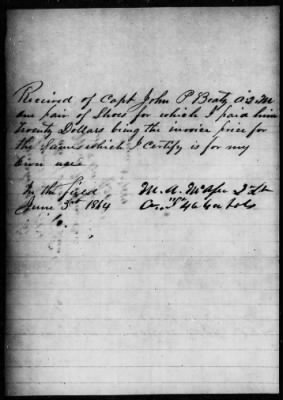 Received of Capt John P Beaty A.Q.M
one pair of Shoes for which I paid him
Twenty Dollars being the invoice price for
the same which I certify is for my
own use
In the field
June 3rd 1864
M. A. 2 Lt
Co.